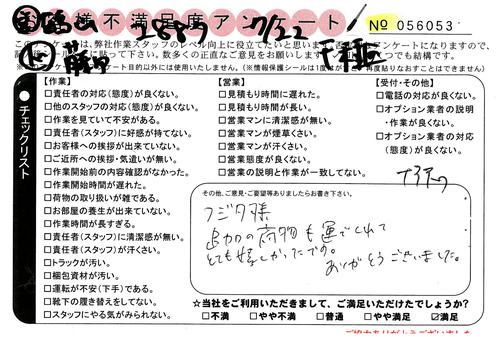 お客様不満足度アンケート
No 056053
2889 7/22
このアンケートは、弊社作業スタッフのレベル向上に役立てたいと思います。
数多くの正直なご意見をお願い
アンケート目的以外には使用いたしません。(※情報保護シールは1度
再度貼りなおすことはできません)
チェックリスト
【作業】
□責任者の対応(態度)が良くない。
□他のスタッフの対応(態度)が良くない。
□作業を見ていて不安がある。
□責任者(スタッフ)に好感が持てない。
□お客様への挨拶が出来ていない。
□ご近所への挨拶・気遣いが無い。
□作業開始前の内容確認がなかった。
□作業開始時間が遅れた。
□荷物の取り扱いが雑である。
□お部屋の養生が出来ていない。
□作業時間が長すぎる。
□責任者(スタッフ)に清潔感が無い。
□責任者(スタッフ)が汗くさい。
□トラックが汚い。
□梱包資材が汚い。
□運転が不安(下手)である。
□靴下の履き替えをしてない。
□スタッフにやる気がみられない。
【営業】
□見積もり時間に遅れた。
□見積もり時間が長い。
□営業マンに清潔感が無い。
□営業マンが煙草くさい。
□営業マンが汗くさい。
□営業態度が良くない。
□営業の説明と作業が一致してない。
【受付・その他】
□電話の対応が良くない。
□オプション業者の説明
・作業が良くない。
□オプション業者の対応
(態度)が良くない。
その他、ご意見・ご要望等ありましたらお書き下さい。
フジタ様
追加の荷物も運んでくれて
とても嬉しかったです。
ありがとうございました。
☆当社をご利用いただきまして、ご満足いただけたでしょうか?
□不満 □やや不満 □普通 □やや満足 ☑満足
ご協力ありがとうございました